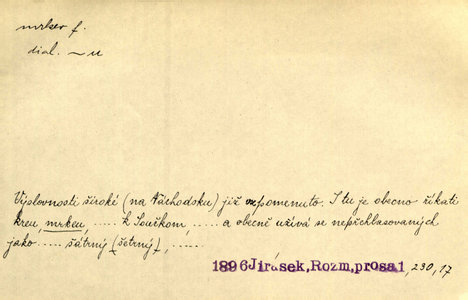 mrkev f.
dial. ~u
Výslovnosti široké (na Náchodsku) již vzpomenuto. I tu je obecno říkati
kreu mrkeu, ..... k Součkom, ..... a obecně užívá se nepřehlasovaných
jako ..... šátrný (šetrný), ......
1896 Jirásek, Rozm, prosa 1, 230, 17